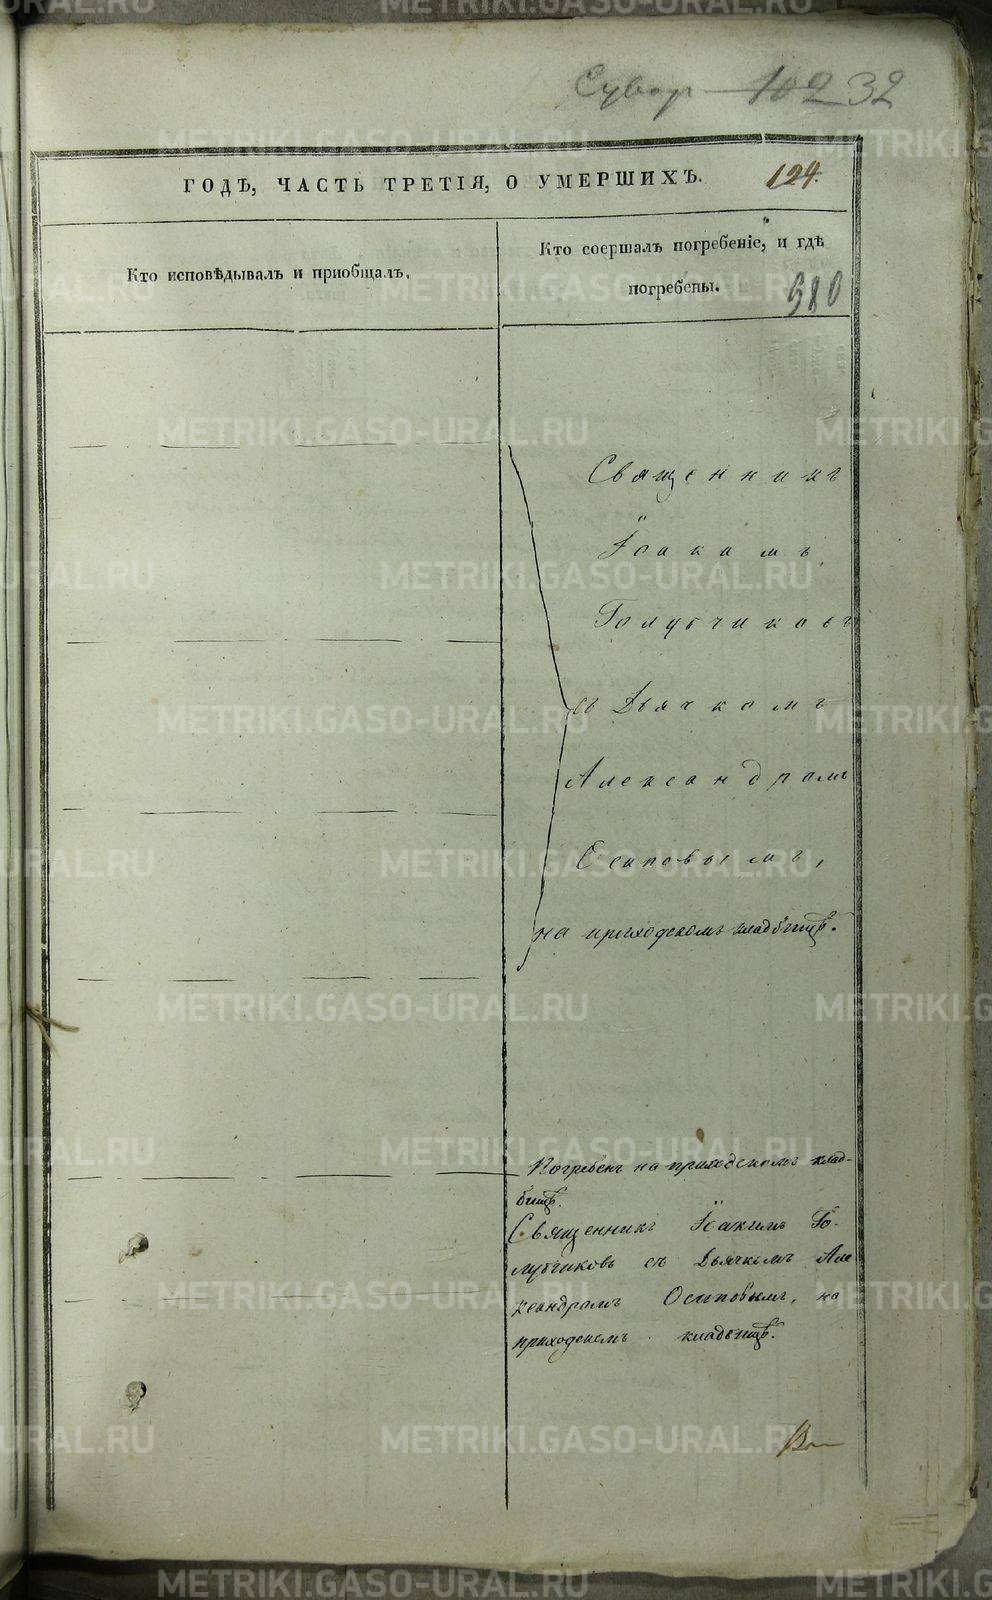 Сувор 102 32
ГОДЪ, ЧАСТЬ ТРЕТІЯ, О УМЕРШИХЪ. 124.
Кто исповѣдывалъ и приобщалъ.
Кто соершалъ погребеніе, и гдѣ
погребены.
980
Священникъ
Іоакимъ
Голубчиковъ
съ Дьячкомъ
Александромъ
Осиповымъ,
на приходскомъ кладбищѣ.
Погребенъ на приходскомъ клад-
бищѣ.
Священникъ Іоакимъ Го-
лубчиковъ съ Дьячкомъ Але
ксандромъ Осиповымъ, на
приходскомъ кладбищѣ.
METRIKI.GASO-URAL.RU